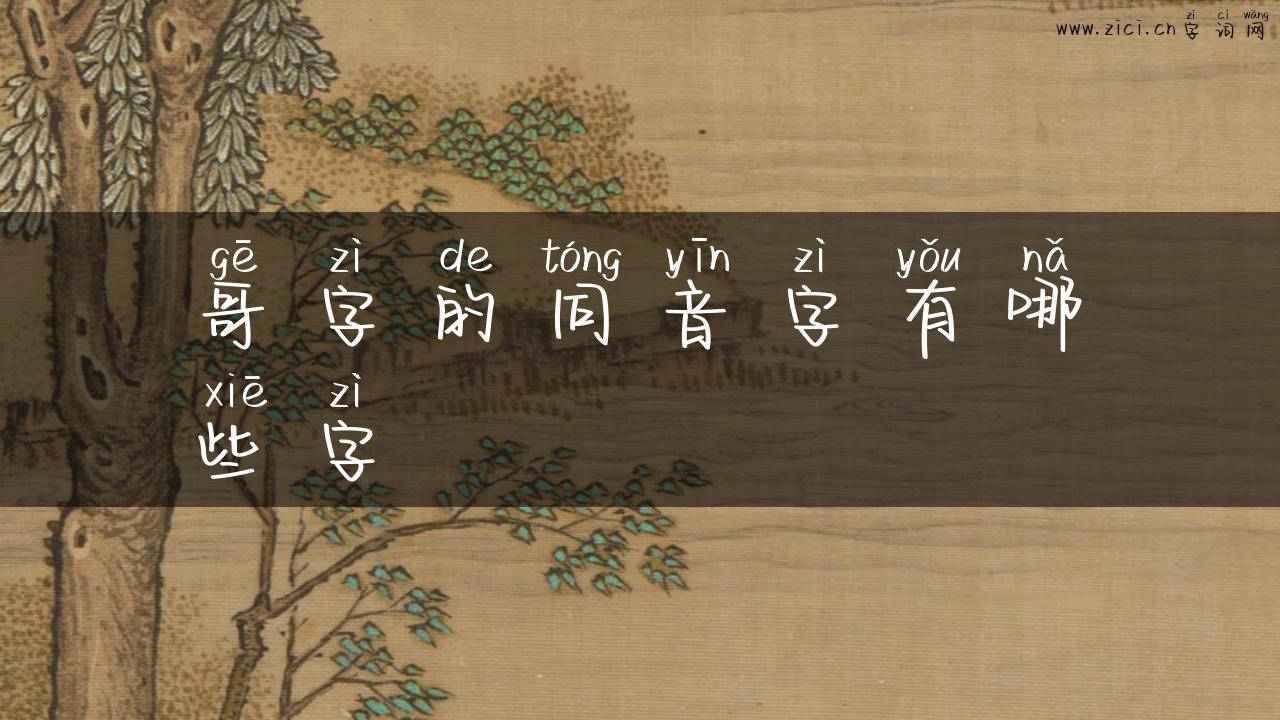 zì cí wǎng
www.zici.cn 字词网
gē zì de tóng yīn zì yǒu nǎ
哥字的同音字有哪
xiē zì
些字